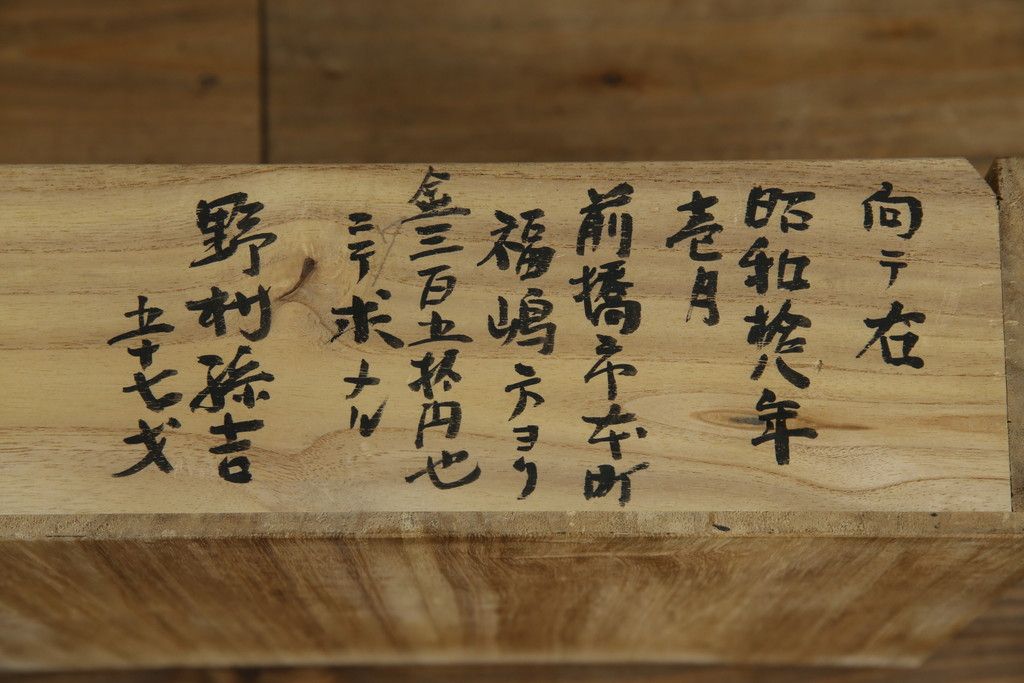 向テ右
昭和拾八年
壱月
前橋市本町
福嶋市ヨリ
金三百五拾円也
ニテ求メル
野村孫吉
五十七才